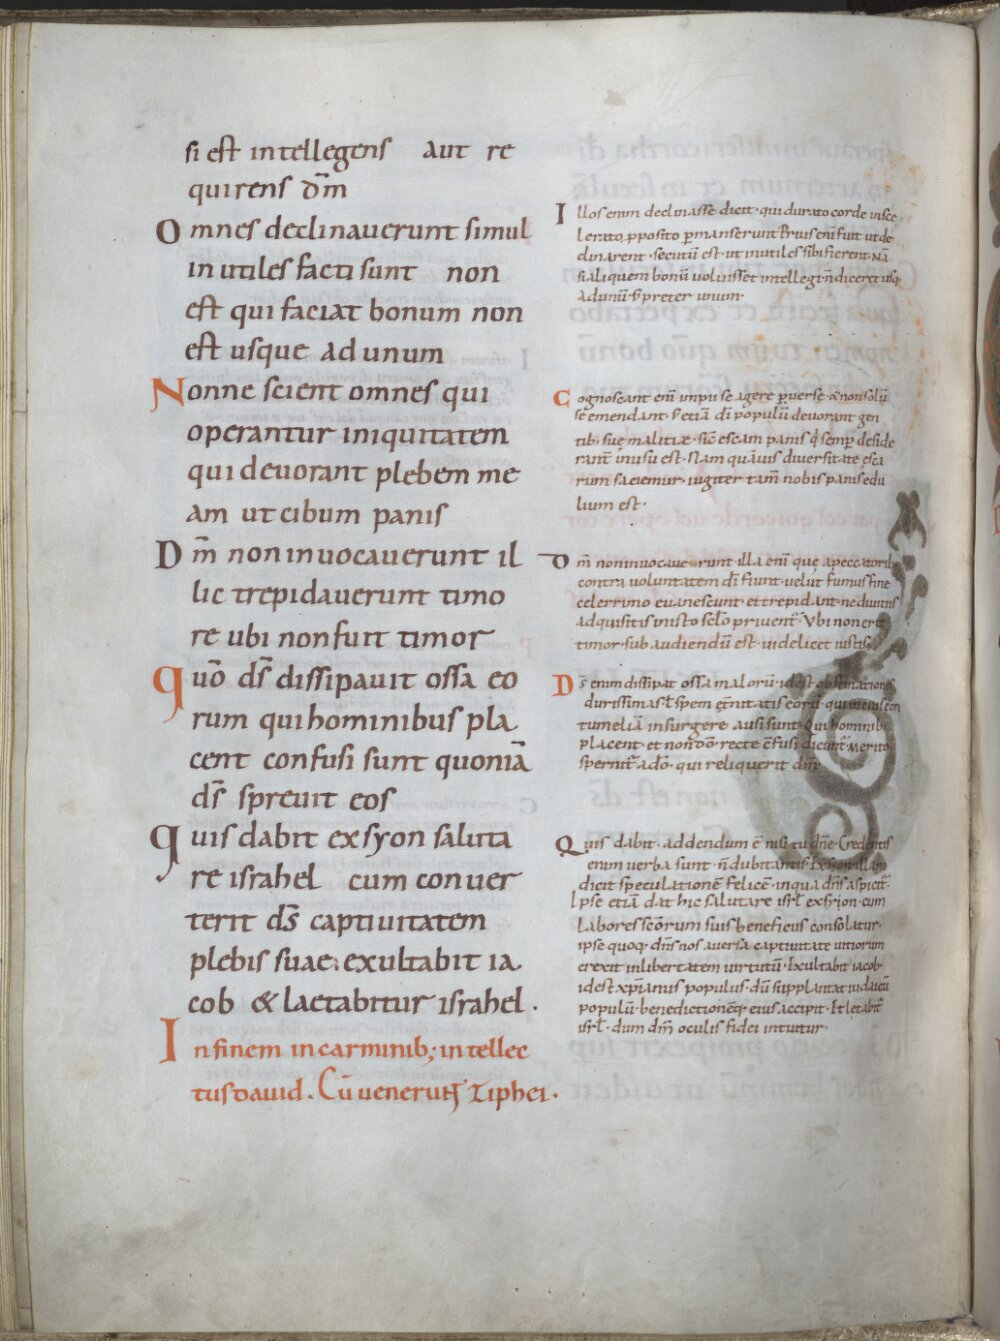 si est intellegens aut re
quirens dm̄
Omnes declinauerunt simul
inutiles facti sunt non
est qui faciat bonum non
est usque ad unum
Nonne scient omnes qui
operantur iniquitatem
qui deuorant plebem me
am ut cibum panis
Dm̄ non inuocauerunt il
lic trepidauerunt timo
re ubi non fuit timor
Quō ds̄ dissipauit ossa eo
rum qui hominibus pla
cent confusi sunt quoniā
ds̄ spreuit eos
Quis dabit ex syon saluta
re israhel cum conuer
terit ds̄ captiuitatem
plebis suae; exultabit ia
cob & laetabitur israhel.
In finem in carminib; intellec
tus dauid. Cū uenerunt Ziphei.
Illos enim declinasse dicit· qui durato corde insce
lerato pposito pmanserunt Prius enī fuit ut de
clinarent· secutū est· ut inutiles sibi fierent· Nā
si aliquem bonū uoluisset intellegi n̄ diceret usq
ad unū· s̄ preter unum·
Cognoscant enī impii se agere puerse & non solū
se emendant· s̄ etiā dī populū deuorant gen
tib; suę malitiae· sic̄ escam panis q̄ semp deside
rant̄ in usu est· Nam quāuis diuersitate esca
rum saciemur· iugiter tam̄ nobis panis edu
lium est·
Dm̄ non inuocauerunt illa enī quę a peccatorib;
contra voluntatem dī fiunt· uelut fumus fine
celerrimo euanescunt· et trepidant· ne diuitiis
adquisitis iniusto scl̄o priuent̄· Vbi non erit
timor· sub audiendū est· uidelicet iustis
Ds̄ enim dissipat ossa malorū· id est obstinationes
durissimas· s̄ spem ęt̄nitatis eorū· qui in eius con
tumeliā insurgere ausi sunt· Qui hominib;
placent· et non dō· recte c̄fusi dicunt̄· Merito
spernit̄ a dō· qui reliquerit dm̄·
Quis dabit· addendum ē nisi tu dn̄e· Credentis
enim uerba sunt· n̄ dubitantis Ex syon illam
dicit speculationē felicē· in qua dn̄s aspicit̄·
Ipse etiā dat hic salutare isrl̄ ex syon· cum
Labores sc̄orum suis beneficiis consolatur·
ipse quoq; dn̄s nos auersa captiuitate uitiorum
erexit in libertatem uirtutū· Exultabit iacob·
id est xp̄ianus populus· dū supplantat iudaicū
populū· benedictionēq; eius accipit· Et lętabit̄
isrl̄· dum dm̄ oculis fidei intuitur·